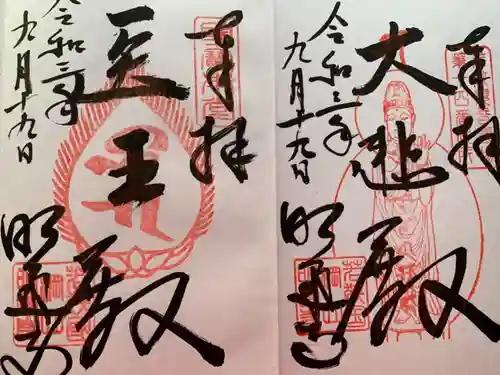 奉拝
大悲殿
令和三年
九月十九日
明通寺
奉拝
医王殿
令和三年
九月十九日
明通寺